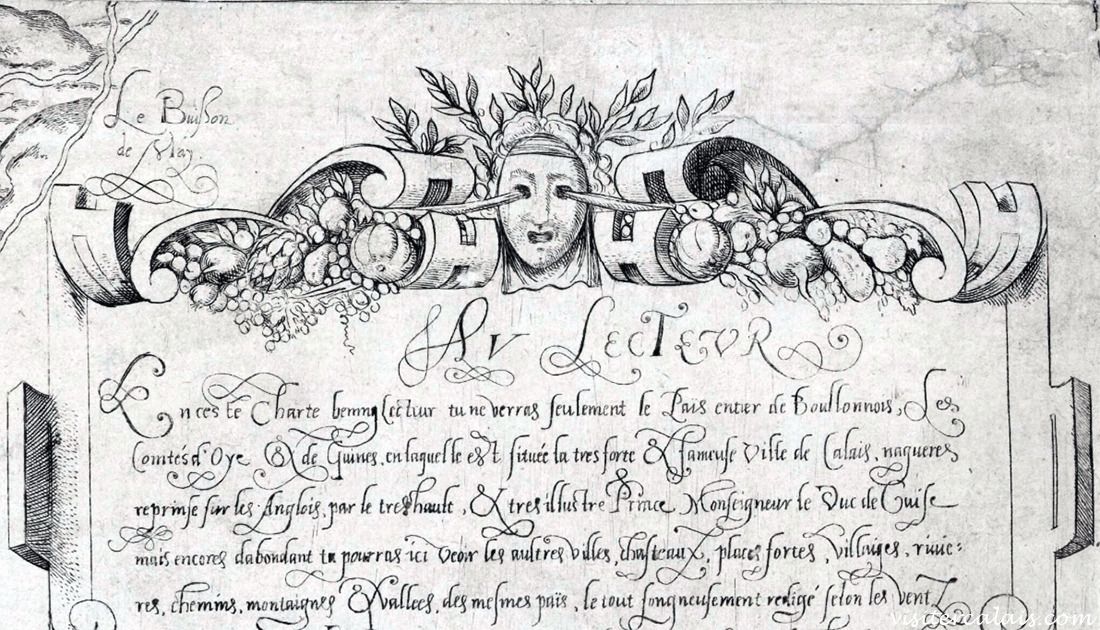 Le Buisson
de May.
AV LECTEVR
En ceste Charte benning Lecteur tu ne verras seulement le Païs entier de Boullonnois, Les
Comtés d'Oye & de Guines, en laquelle est située la tres forte & fameuse Ville de Calais, nagueres
reprinse sur les Anglois, par le treshault, & tresillustre Prince Monseigneur le Duc de Guise
mais encores dabondant tu pourras ici veoir les aultres villes, chasteaux, places fortes, villaiges, rivie:
res, chemins, montaignes & vallees, des mesmes païs, le tout songneusement redigé selon les vent
visitercalais.com